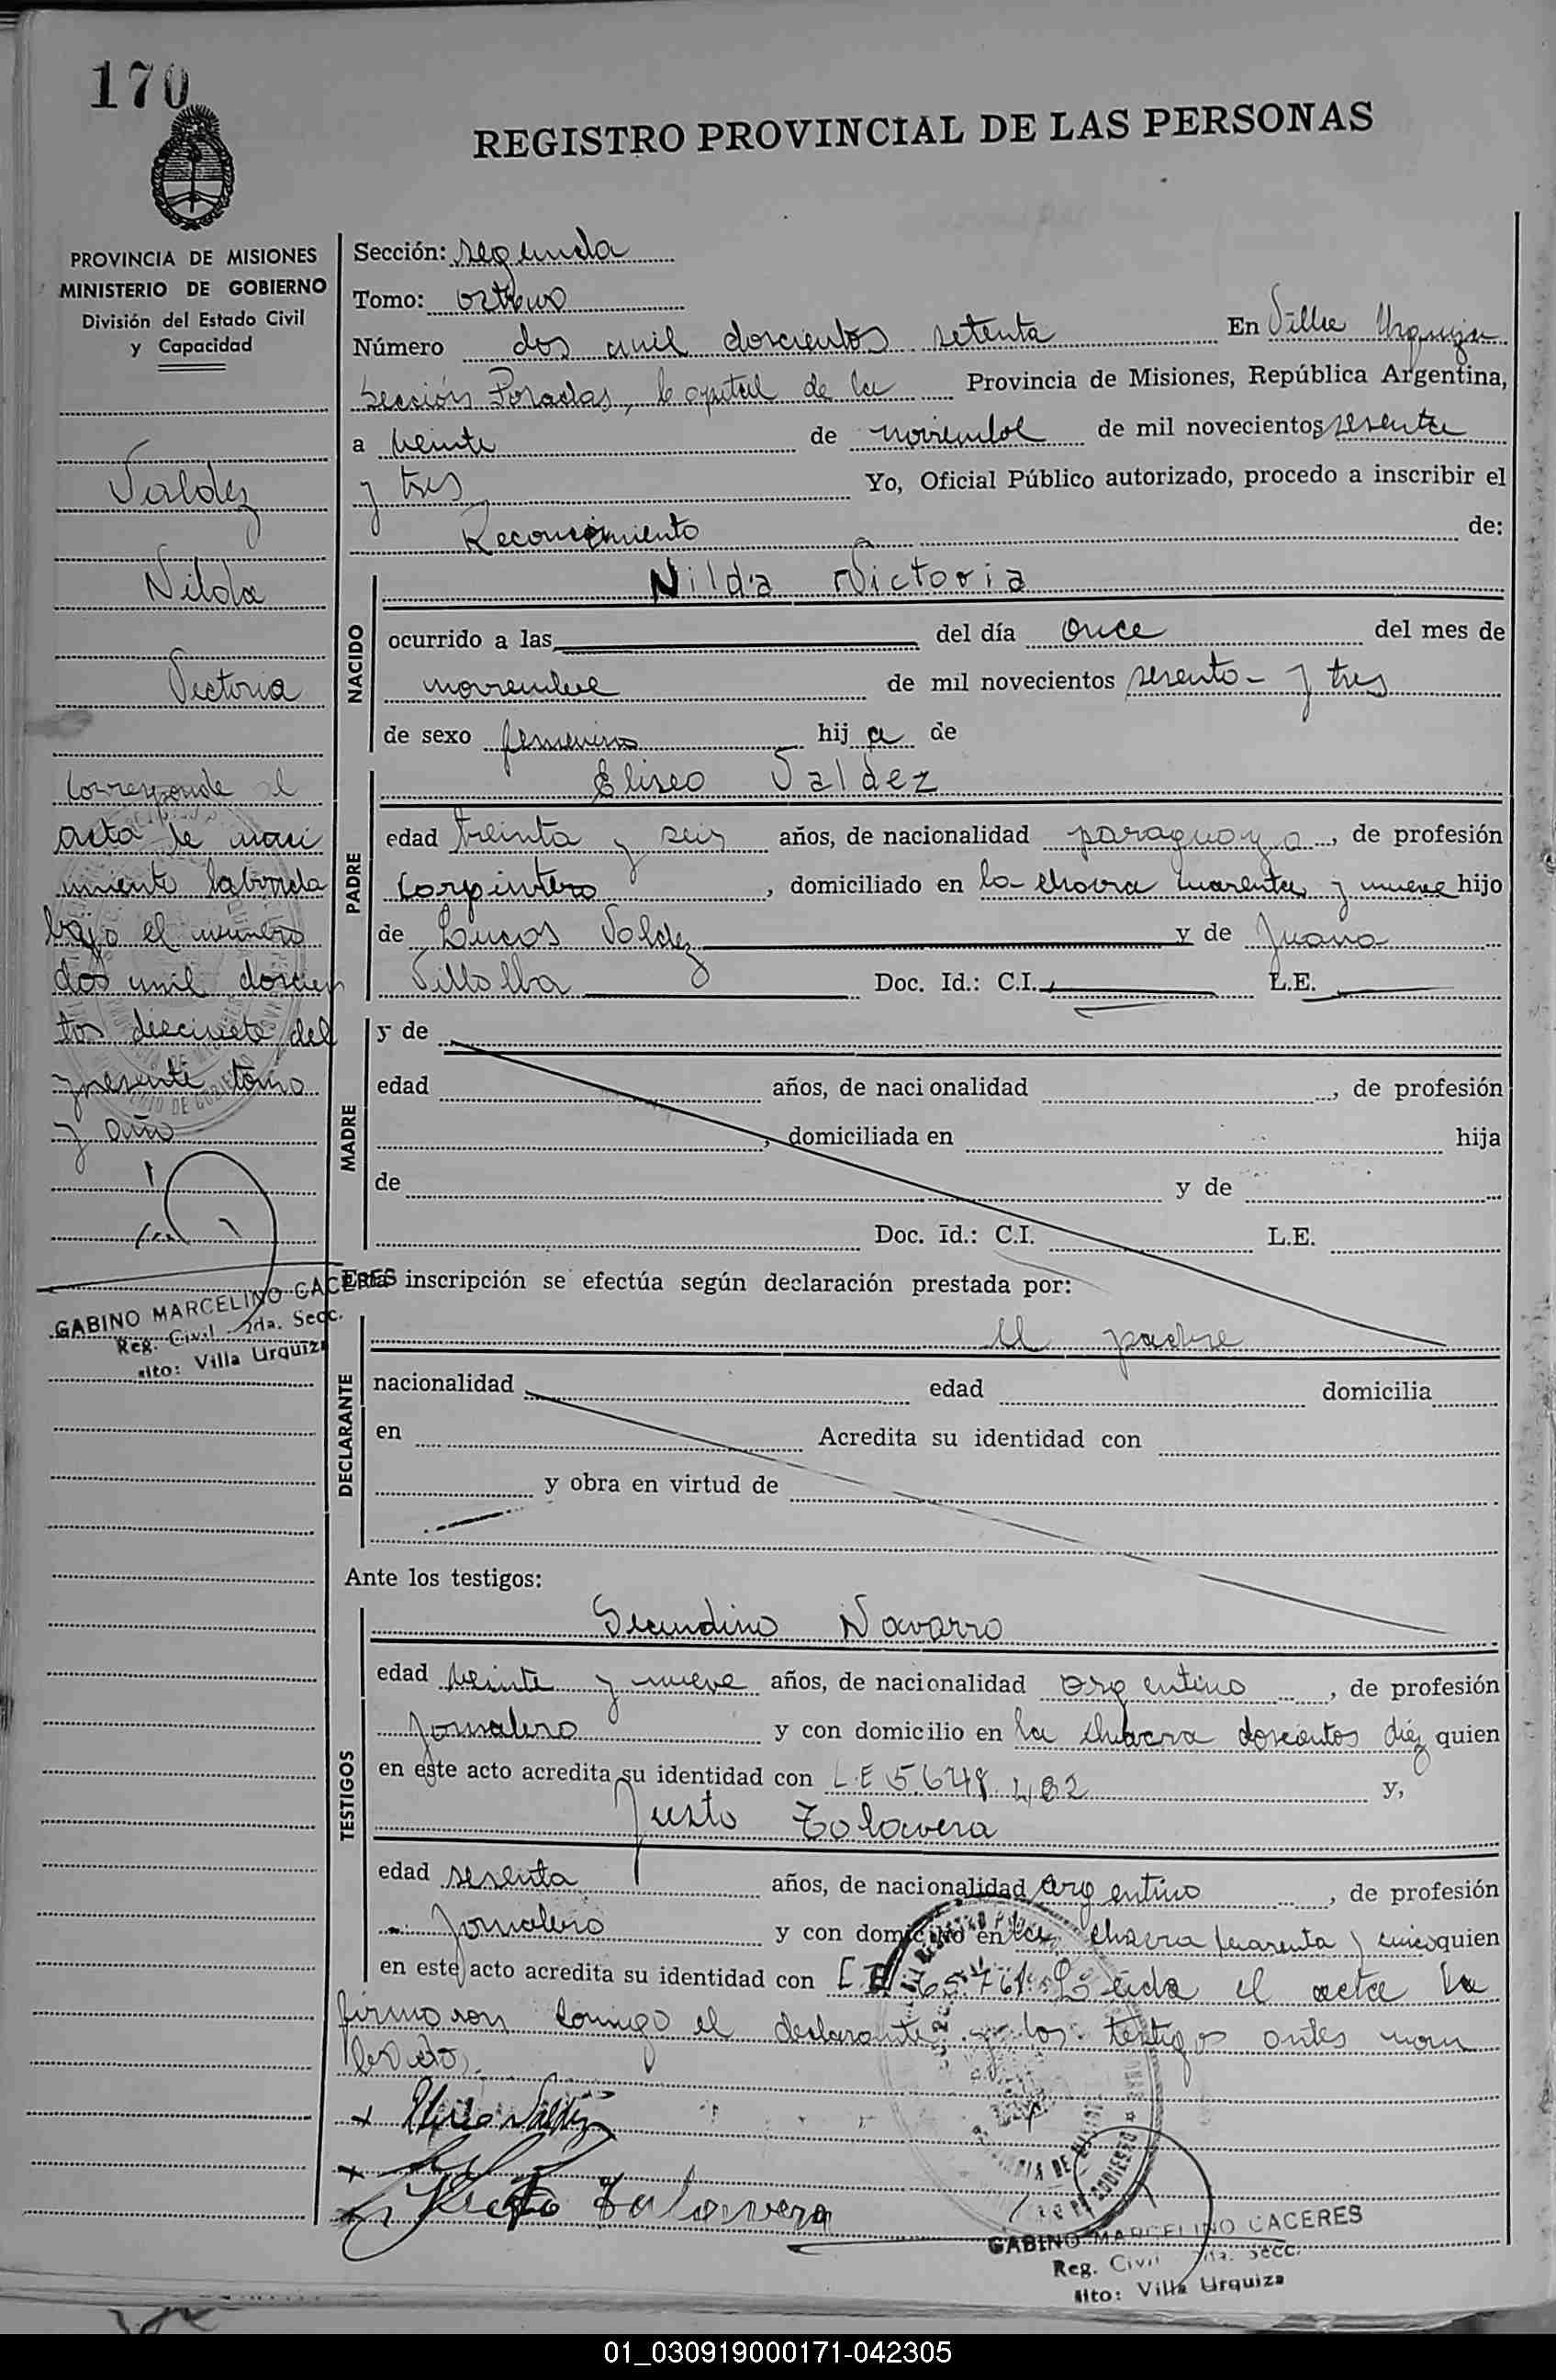 170
REGISTRO PROVINCIAL DE LAS PERSONAS
PROVINCIA DE MISIONES
MINISTERIO DE GOBIERNO
División del Estado Civil
y Capacidad
Valdez
Nilda
Victoria
Corresponde al
acta de naci
miento labrada
bajo el número
dos mil doscien
tos diecisiete del
presente tomo
y año
GABINO MARCELINO CACERES
Reg. Civil 2da. Secc.
Villa Urquiza
Sección: segunda
Tomo: octavo
Número dos mil doscientos setenta En Villa Urquiza
Sección Posadas, Capital de la Provincia de Misiones, República Argentina,
a veinte de noviembre de mil novecientos sesenta
y tres Yo, Oficial Público autorizado, procedo a inscribir el
Reconocimiento de:
NACIDO
Nilda Victoria
ocurrido a las del día once del mes de
noviembre de mil novecientos sesenta y tres
de sexo femenino hij a de
PADRE
Eliseo Valdez
edad treinta y seis años, de nacionalidad paraguaya, de profesión
Carpintero, domiciliado en la chacra cuarenta y nueve hijo
de Lucas Valdez y de Juana
Villalba Doc. Id.: C.I. L.E.
MADRE
y de
edad años, de nacionalidad , de profesión
, domiciliada en hija
de y de
Doc. Id.: C.I. L.E.
Esta inscripción se efectúa según declaración prestada por:
DECLARANTE
El padre
nacionalidad edad domicilia
en Acredita su identidad con
y obra en virtud de
Ante los testigos:
TESTIGOS
Secundino Navarro
edad veinte y nueve años, de nacionalidad argentino, de profesión
Jornalero y con domicilio en la chacra doscientos diez quien
en este acto acredita su identidad con L.E 5.648.482 y,
Justo Talavera
edad sesenta años, de nacionalidad argentino, de profesión
Jornalero y con domicilio en la chacra cuarenta y cinco quien
en este acto acredita su identidad con Leida el acta la
firmaron conmigo el declarante y los testigos antes nom
brados.
Eliseo Valdez
Justo Talavera
GABINO MARCELINO CACERES
Reg. Civil 2da. Secc.
Villa Urquiza
01_030919000171-042305